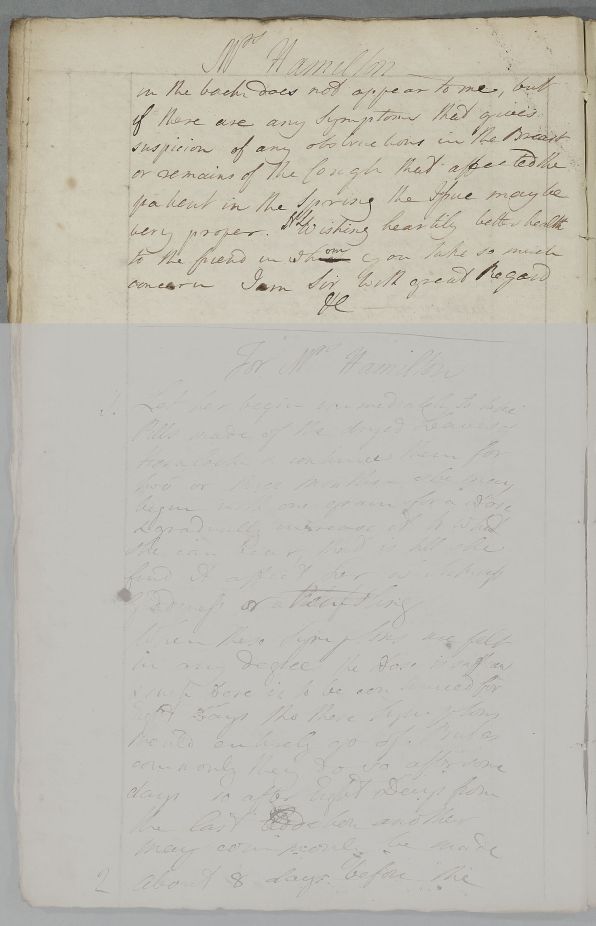 Mrs Hamilton
in the back does not appear to me, but
if there are any Symptoms that gives
suspicion of any obstructions in the Breast
or remains of the Cough that affected the
patient in the Spring the Issue may be
very proper. Wishing heartily better health
to the friend in whom you take so much
concern I am Sir With great Regard
&c
For Mrs Hamilton
1. Let her begin immediately to take
Pills made of the dryed Leaves of
Hemlock & continue them for
two or three months. She may
begin with one grain for a Dose
& gradually increase it to what
she can bear, that is till she
find it affect her with
giddiness or a Trembling
When these Symptoms are felt
in any degree the Dose is
such Dose is to be continued for
Eight Days tho these Symptoms
should entirely go off. But as
commonly they do so after some
days so after Eight days from
the last another
may be made
2 about 8 days before the